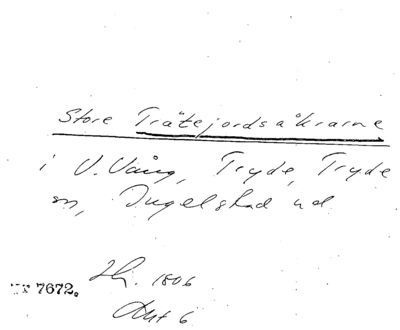 Store Trätejordsåkrarne
i V. Vång, Tryde, Tryde
sn, Ingelstad hd
7672. 1806
Akt 6